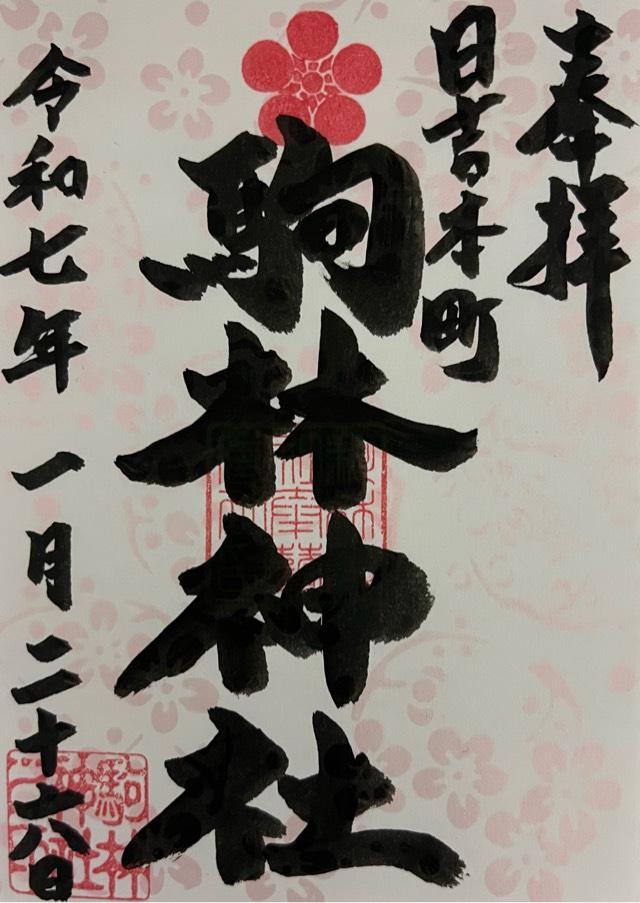 奉拝
日吉本町
駒林神社
令和七年 一月二十六日
駒林
神社